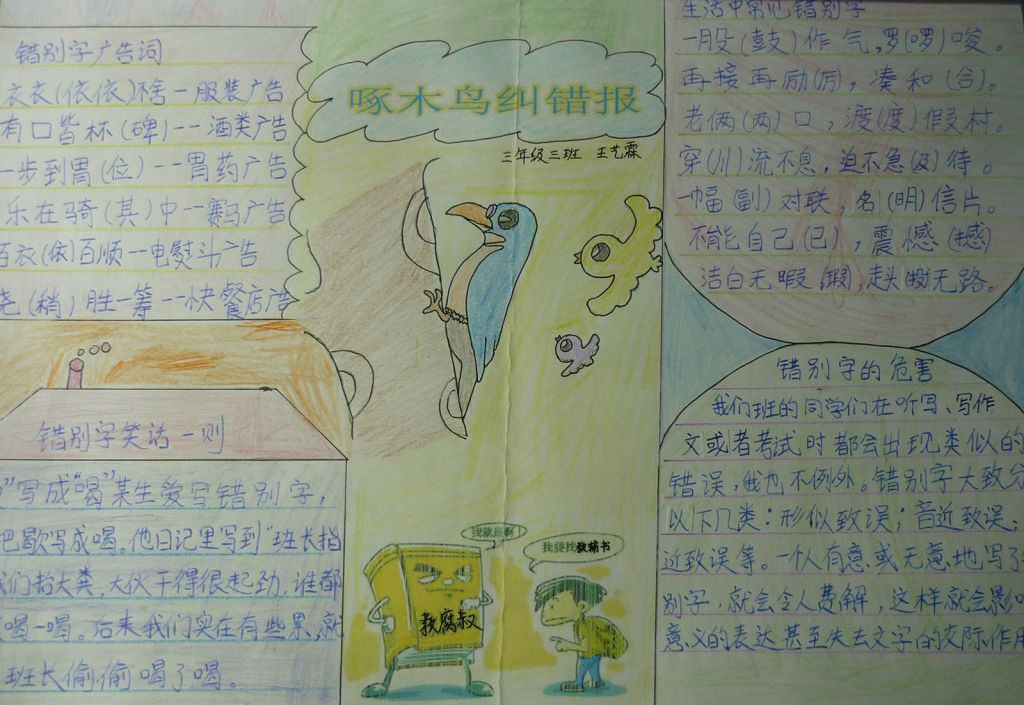 错别字广告词
衣衣(依依)不舍一服装广告
有口皆杯(碑)一一酒类广告
一步到胃(位)一一胃药广告
乐在骑(其)中一赛马广告
百衣(依)百顺一电熨斗广告
(稍)胜一筹一一快餐店广告
错别字笑话一则
"写成"喝"某生爱写错别字,
把歇写成喝。他日记里写到"班长指
我们抬大粪,大伙干得很起劲,谁都
喝一喝。后来我们实在有些累,就
班长偷偷喝了喝。
啄木鸟纠错报
三年级三班 王艺霖
我就是啊
我要找教辅书
教腐叔
生活中常见错别字
一股(鼓)作气,罗(啰)唆。
再接再励(厉),凑和(合)。
老俩(两)口,渡(度)假村。
穿(川)流不息,迫不急(及)待。
一幅(副)对联,名(明)信片。
不能自己(已),震憾(撼)
洁白无暇(瑕),走头(投)无路。
错别字的危害
我们班的同学们在听写、写作
文或者考试时都会出现类似的
错误,我也不例外。错别字大致分
以下几类:形似致误;音近致误;
近致误等。一个人有意或无意地写了
别字,就会令人费解,这样就会影响
意义的表达甚至失去文字的交际作用